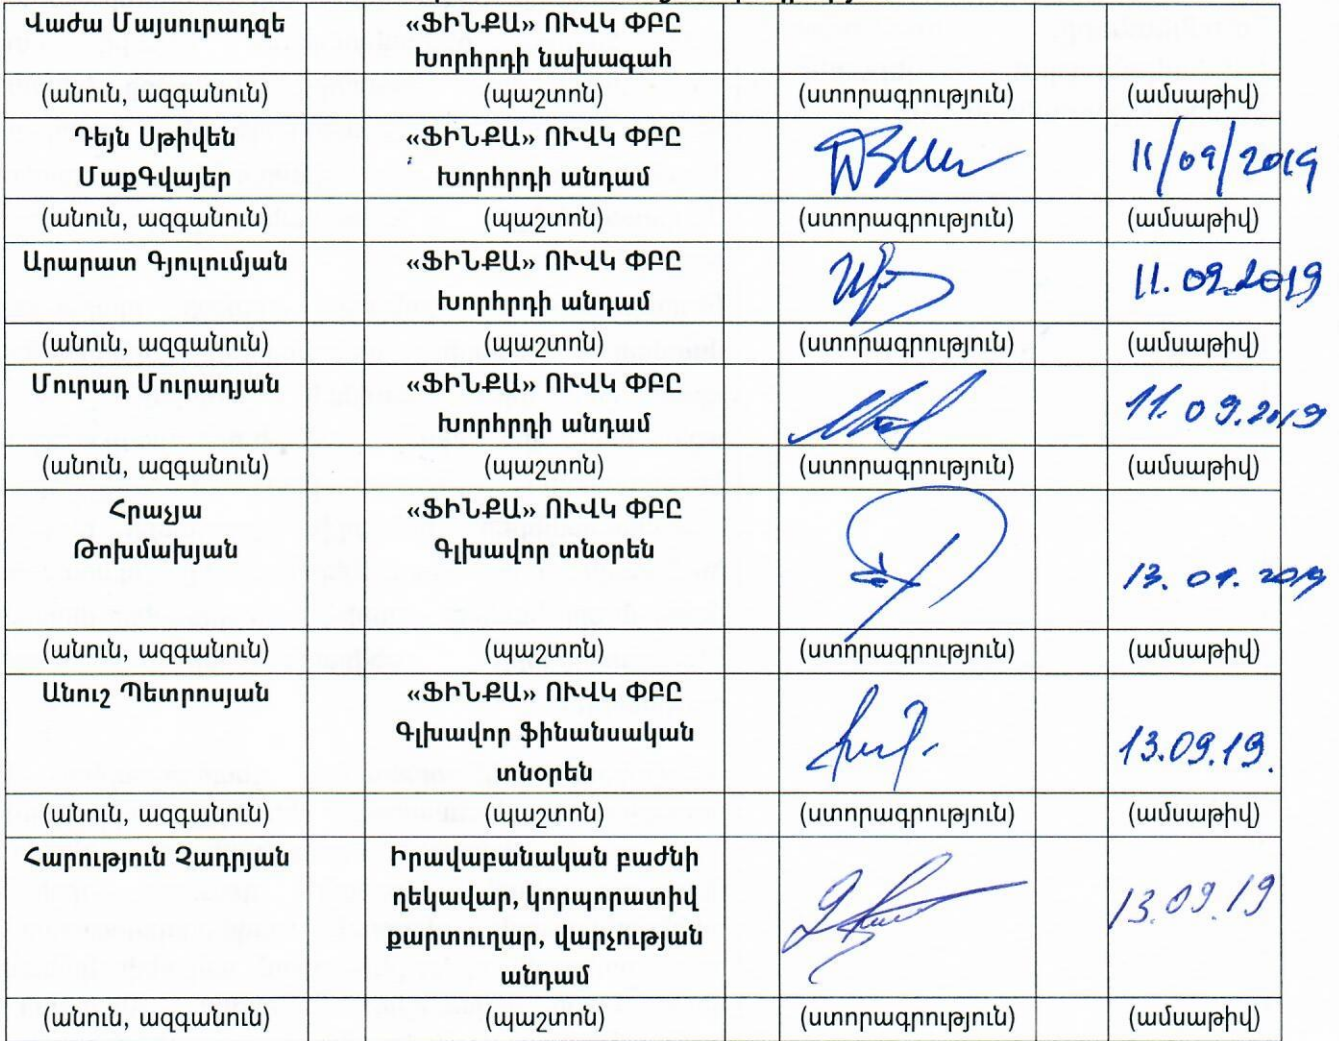 Վաժա Մայսուրաձզե «ՖԻՆՔԱ» ՈՒՎԿ ՓԲԸ
Խորհրդի նախագահ
(անուն, ազգանուն) (պաշտոն) (ստորագրություն) (ամսաթիվ)
Դեյն Սթիվեն «ՖԻՆՔԱ» ՈՒՎԿ ՓԲԸ
ՄաքԳվայեր Խորհրդի անդամ 11/09/2019
(անուն, ազգանուն) (պաշտոն) (ստորագրություն) (ամսաթիվ)
Արարատ Գյուլումյան «ՖԻՆՔԱ» ՈՒՎԿ ՓԲԸ
Խորհրդի անդամ 11.09.2019
(անուն, ազգանուն) (պաշտոն) (ստորագրություն) (ամսաթիվ)
Մուրադ Մուրադյան «ՖԻՆՔԱ» ՈՒՎԿ ՓԲԸ
Խորհրդի անդամ 11.09.2019
(անուն, ազգանուն) (պաշտոն) (ստորագրություն) (ամսաթիվ)
Հրաչյա «ՖԻՆՔԱ» ՈՒՎԿ ՓԲԸ
Թոխմախյան Գլխավոր տնօրեն 13.09.2019
(անուն, ազգանուն) (պաշտոն) (ստորագրություն) (ամսաթիվ)
Անուշ Պետրոսյան «ՖԻՆՔԱ» ՈՒՎԿ ՓԲԸ
Գլխավոր ֆինանսական 13.09.19.
տնօրեն
(անուն, ազգանուն) (պաշտոն) (ստորագրություն) (ամսաթիվ)
Հարություն Չադրյան Իրավաբանական բաժնի
ղեկավար, կորպորատիվ 13.09.19
քարտուղար, վարչության
անդամ
(անուն, ազգանուն) (պաշտոն) (ստորագրություն) (ամսաթիվ)